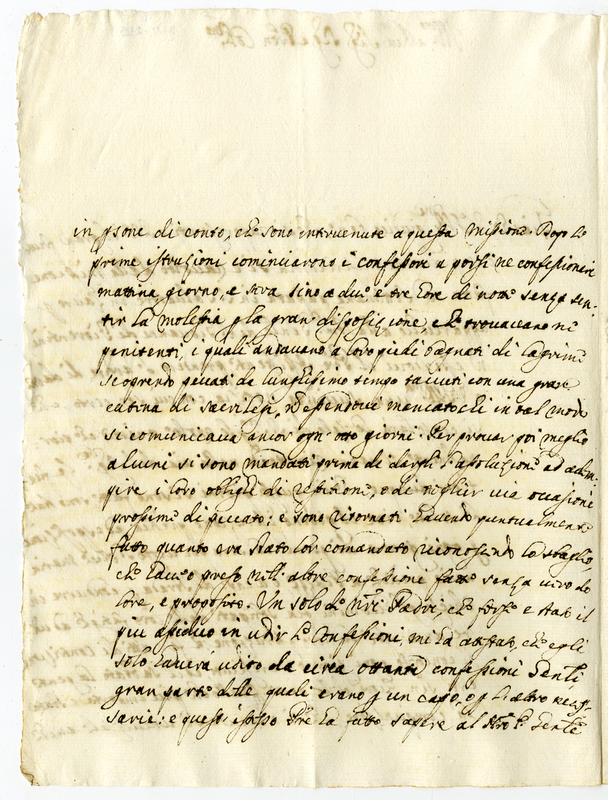 in psone di conto, che sono intervenute a questa missione. Dopo le
prime istruzioni cominciarono i confessori a porsi ne confessionari
mattina, giorno, e sera sino a due e tre hore di notte senza sen-
tir la molestia p la gran disposizione, che trovavano ne
penitenti, i quali andavano a loro piedi bagnati di lagrime
scoprendo peccati da lunghissimo tempo taciuti con una grave
catena di sacrilegi, non essendovi mancato chi in tal modo
si comunicava ancor ogn'otto giorni. Per provar poi meglio
alcuni si sono mandati prima di dargli l'assoluzione ad adem-
pire i loro oblighi di restitione, e di toglier via occasioni
prossime di peccato; e sono ritornati havendo puntualmente
fatto quanto era stato lor comandato riconoscendo lo sbaglio
che haveano preso nell'altre confessioni fatte senza vero do
lore, e proposito. Un solo de nri Padri, che forse è stato il
piu assiduo in udir le confessioni, mi ha attestato, che egli
solo haverà udito da circa ottanta confessioni Genli
gran parte delle quali erano p un capo, o p l'altro neces-
sarie: e questo istesso Pre ha fatto sapere al Nro P. Gentle